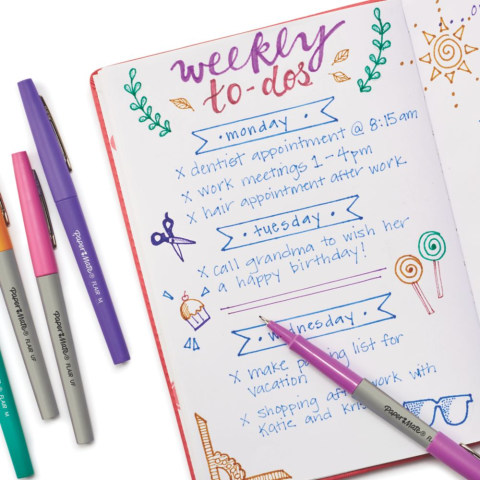 weekly
to-dos
monday
x dentist appointment @ 8:15am
x work meetings 1-4pm
x hair appointment after work
tuesday
x call grandma to wish her
a happy birthday!
wednesday
x make packing list for
vacation
x shopping after work with
Katie and
Paper Mate® FLAIR M
Paper Mate® FLAIR UF
Paper Mate® FLAIR UF
Paper Mate® FLAIR M
Paper Mate® FLAIR